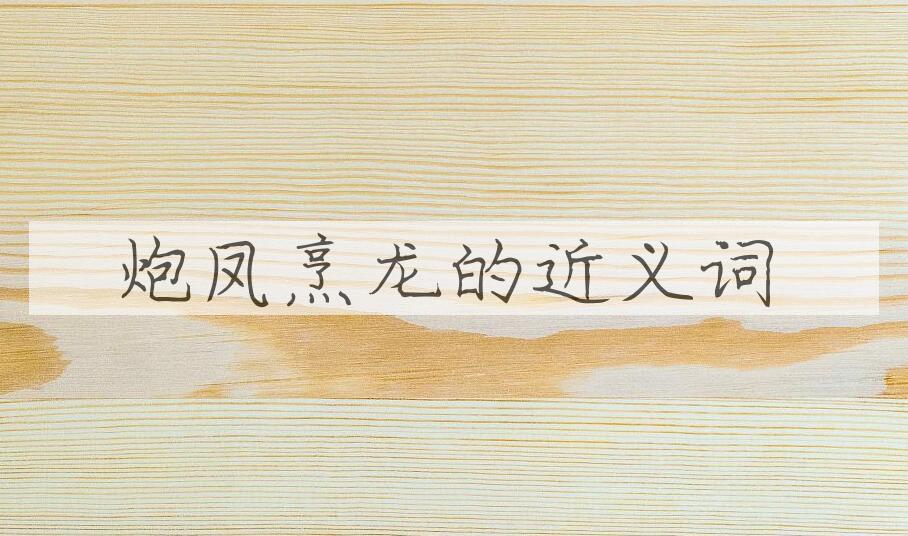 炮凤烹龙的近义词